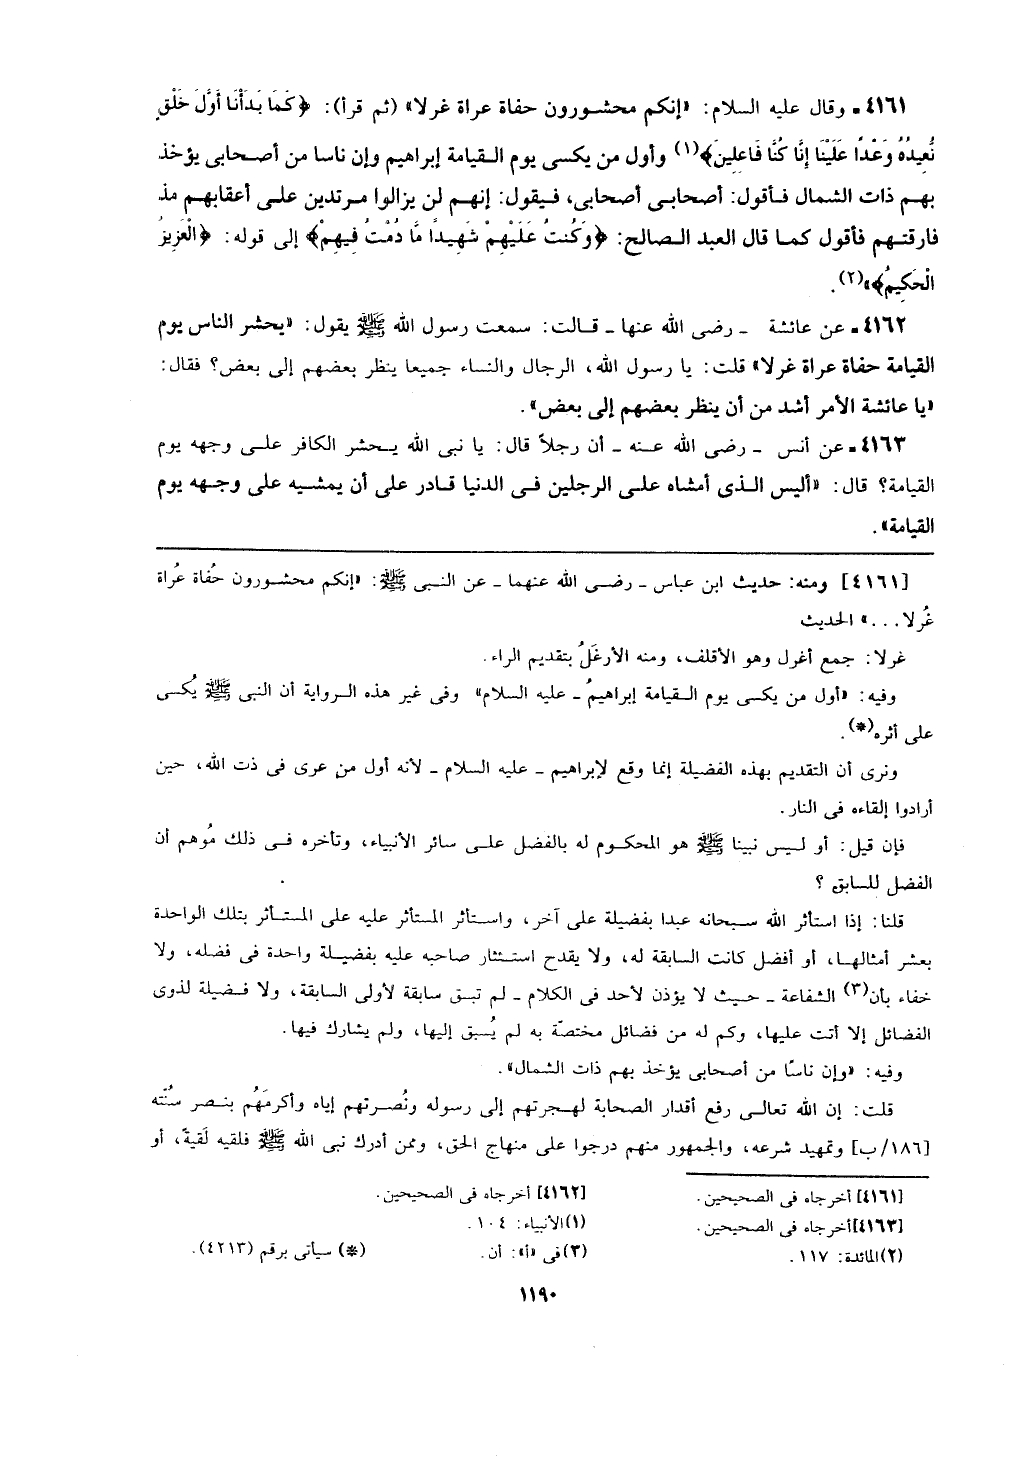 ٤١٦١ـ وقال عليه السلام: «إنكم محشورون حفاة عراة غرلا» (ثم قرأ): ﴿كَمَا بَدَأْنَا أَوَّلَ خَلْقٍ
نُّعِيدُهُ وَعْدًا عَلَيْنَا إِنَّا كُنَّا فَاعِلِينَ﴾(١) وأول من يكسى يوم القيامة إبراهيم وإن ناسا من أصحابى يؤخذ
بهم ذات الشمال فأقول: أصحابى أصحابى، فيقول: إنهم لن يزالوا مرتدين على أعقابهم مذ
فارقتهم فأقول كما قال العبد الصالح: ﴿وَكُنتُ عَلَيْهِمْ شَهِيدًا مَّا دُمْتُ فِيهِمْ﴾ إلى قوله: ﴿الْعَزِيزُ
الْحَكِيمُ﴾»(٢).
٤١٦٢ـ عن عائشة ـ رضى الله عنها ـ قالت: سمعت رسول الله ﷺ يقول: «يحشر الناس يوم
القيامة حفاة عراة غرلا» قلت: يا رسول الله، الرجال والنساء جميعا ينظر بعضهم إلى بعض؟ فقال:
«يا عائشة الأمر أشد من أن ينظر بعضهم إلى بعض».
٤١٦٣ـ عن أنس ـ رضى الله عنه ـ أن رجلاً قال: يا نبى الله يحشر الكافر على وجهه يوم
القيامة؟ قال: «أليس الذى أمشاه على الرجلين فى الدنيا قادر على أن يمشيه على وجهه يوم
القيامة».
[٤١٦١] ومنه: حديث ابن عباس ـ رضى الله عنهما ـ عن النبى ﷺ: «إنكم محشورون حُفاة عُراة
غُرلا...» الحديث
غرلا: جمع أغرل وهو الأقلف، ومنه الأرغَلُ بتقديم الراء.
وفيه: «أول من يكسى يوم القيامة إبراهيمُ ـ عليه السلام» وفى غير هذه الرواية أن النبى ﷺ يُكسى
على أثره(*).
ونرى أن التقديم بهذه الفضيلة إنما وقع لإبراهيم ـ عليه السلام ـ لأنه أول من عرى فى ذت الله، حين
أرادوا إلقاءه فى النار.
فإن قيل: أو ليس نبينا ﷺ هو المحكوم له بالفضل على سائر الأنبياء، وتأخره فى ذلك مُوهم أن
الفضل للسابق ؟
قلنا: إذا استأثر الله سبحانه عبدا بفضيلة على آخر، واستأثر المستأثر عليه على المستأثر بتلك الواحدة
بعشر أمثالها، أو أفضل كانت السابقة له، ولا يقدح استئثار صاحبه عليه بفضيلة واحدة فى فضله، ولا
خفاء بأن(٣) الشفاعة ـ حيث لا يؤذن لأحد فى الكلام ـ لم تبق سابقة لأولى السابقة، ولا فضيلة لذوى
الفضائل إلا أتت عليها، وكم له من فضائل مختصّة به لم يُسبق إليها، ولم يشارك فيها.
وفيه: «وإن ناسًا من أصحابى يؤخذ بهم ذات الشمال».
قلت: إن الله تعالى رفع أقدار الصحابة لهجرتهم إلى رسوله ونُصرتهم إياه وأكرمَهُم بنصر سُنّته
[١٨٦/ب] وتمهيد شرعه، والجمهور منهم درجوا على منهاج الحق، وممن أدرك نبى الله ﷺ فلقيه لَقيةً، أو
[٤١٦١] أخرجاه فى الصحيحين.
[٤١٦٢] أخرجاه فى الصحيحين.
[٤١٦٣]أخرجاه فى الصحيحين.
(١)الأنبياء: ١٠٤.
(٢)المائدة: ١١٧.
(٣)فى «أ»: أن.
(*) سيأتى برقم (٤٢١٣).
١١٩٠